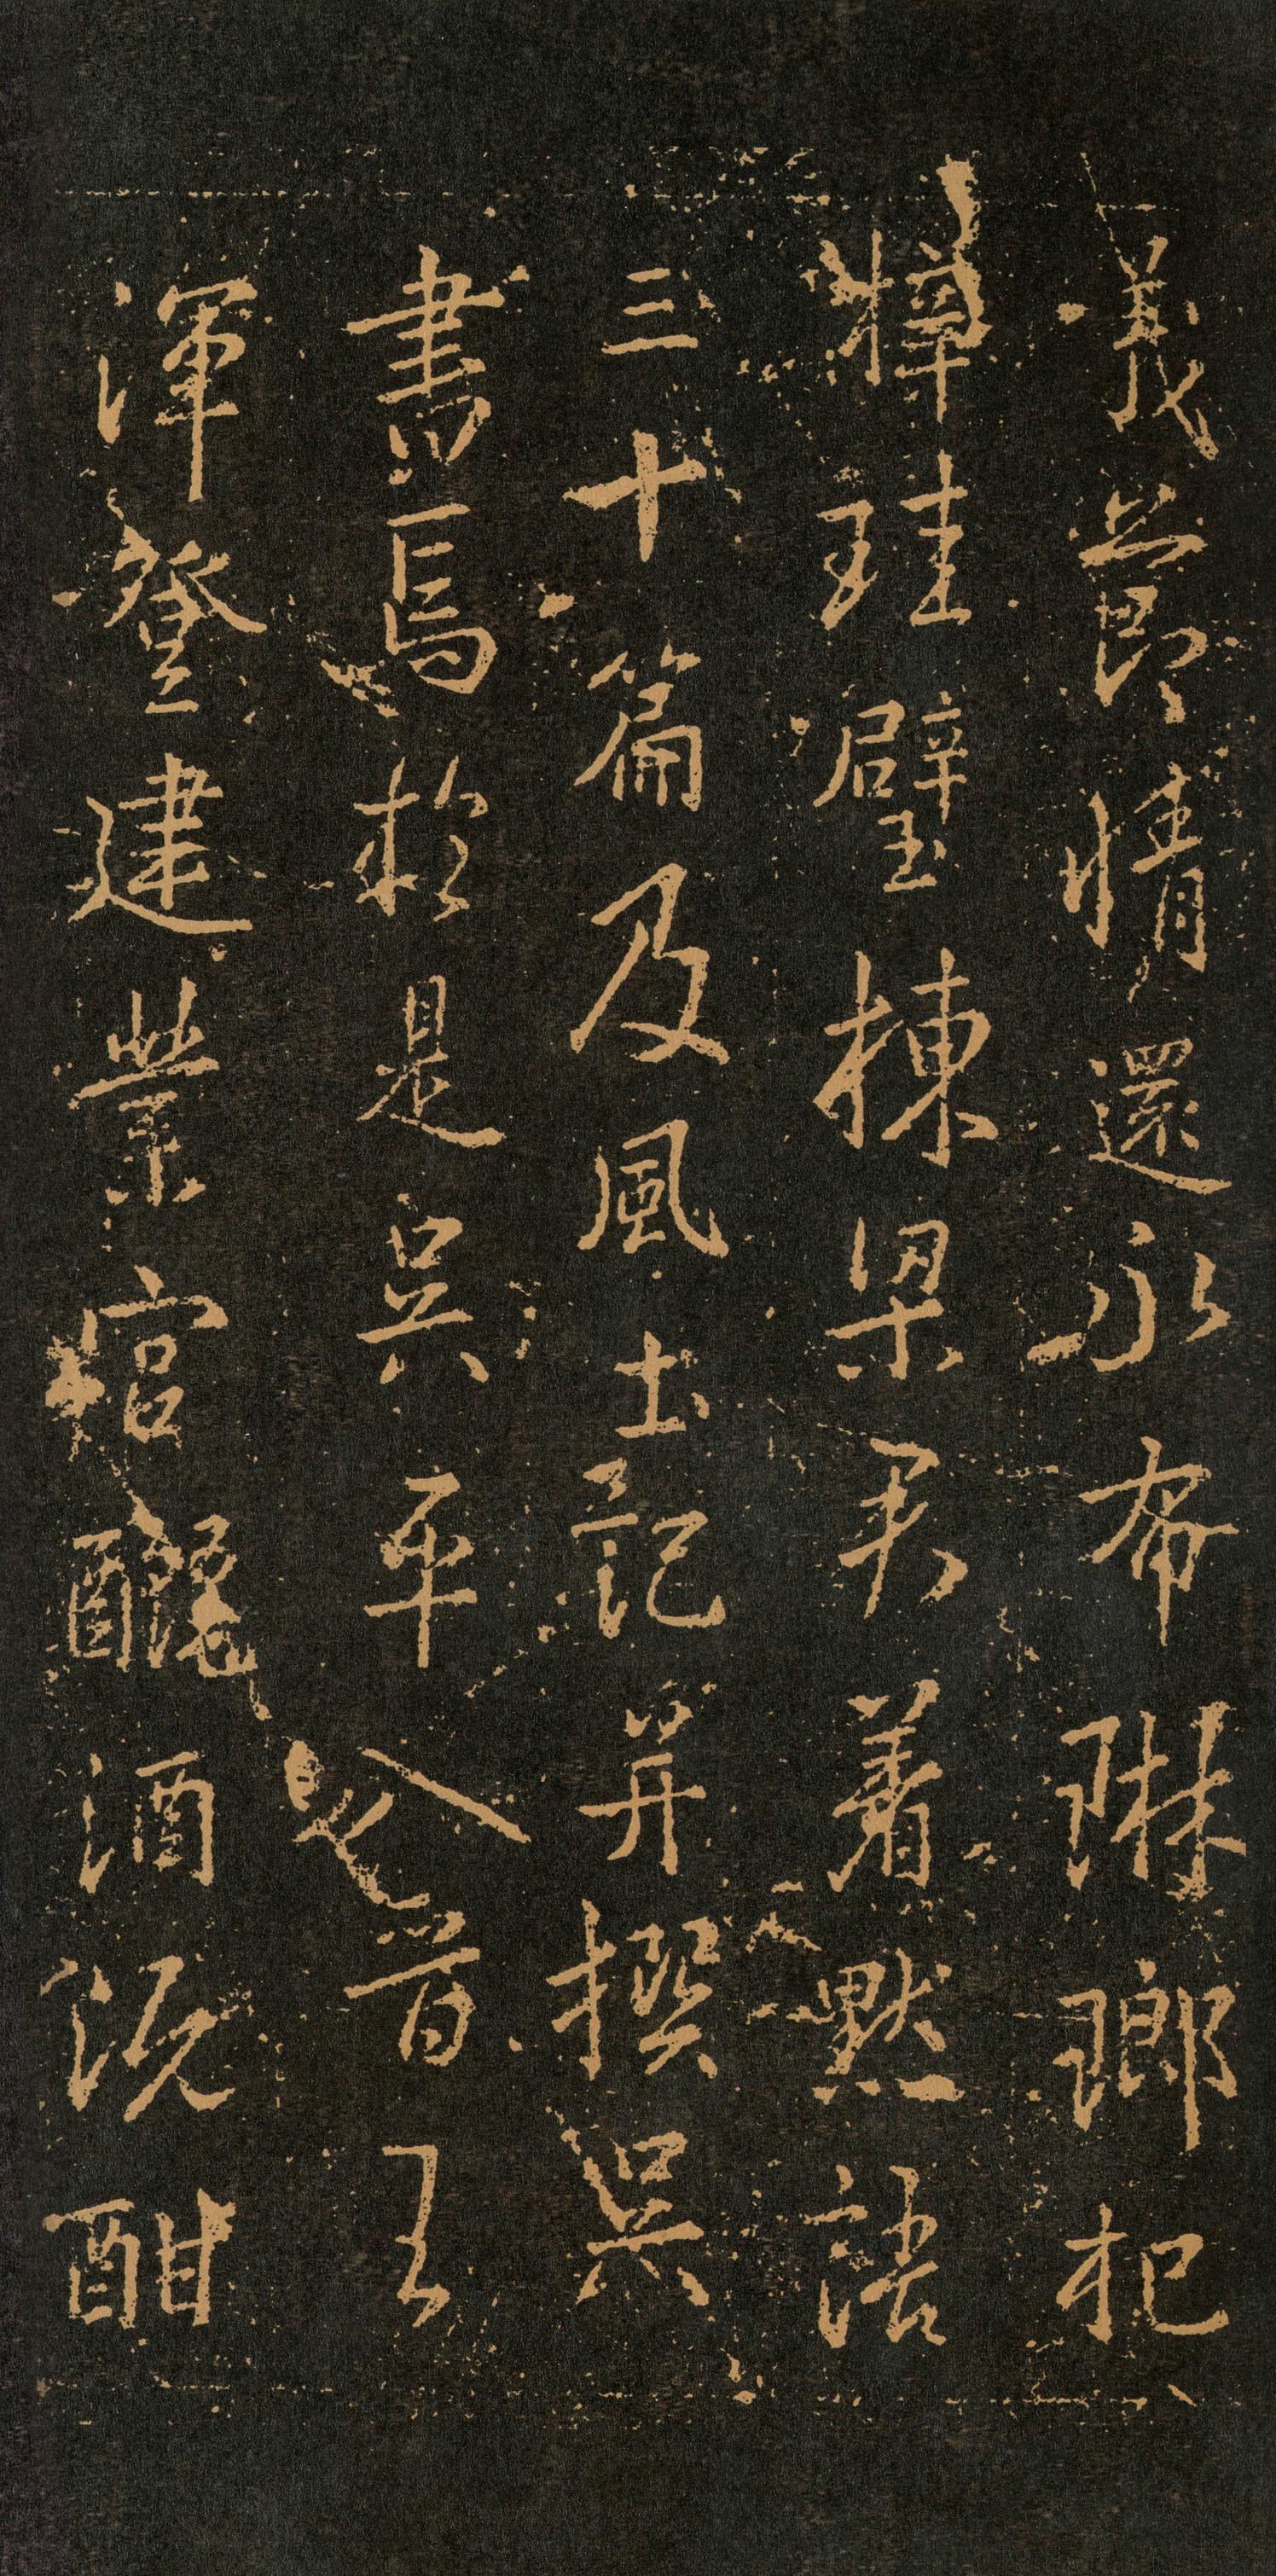 義節情還永布琳瑯杞
梓珪璧棟梁君著默語
三十篇及風土記并撰吳
書焉於是吳平入晉王
渾登建業宮釃酒既酣